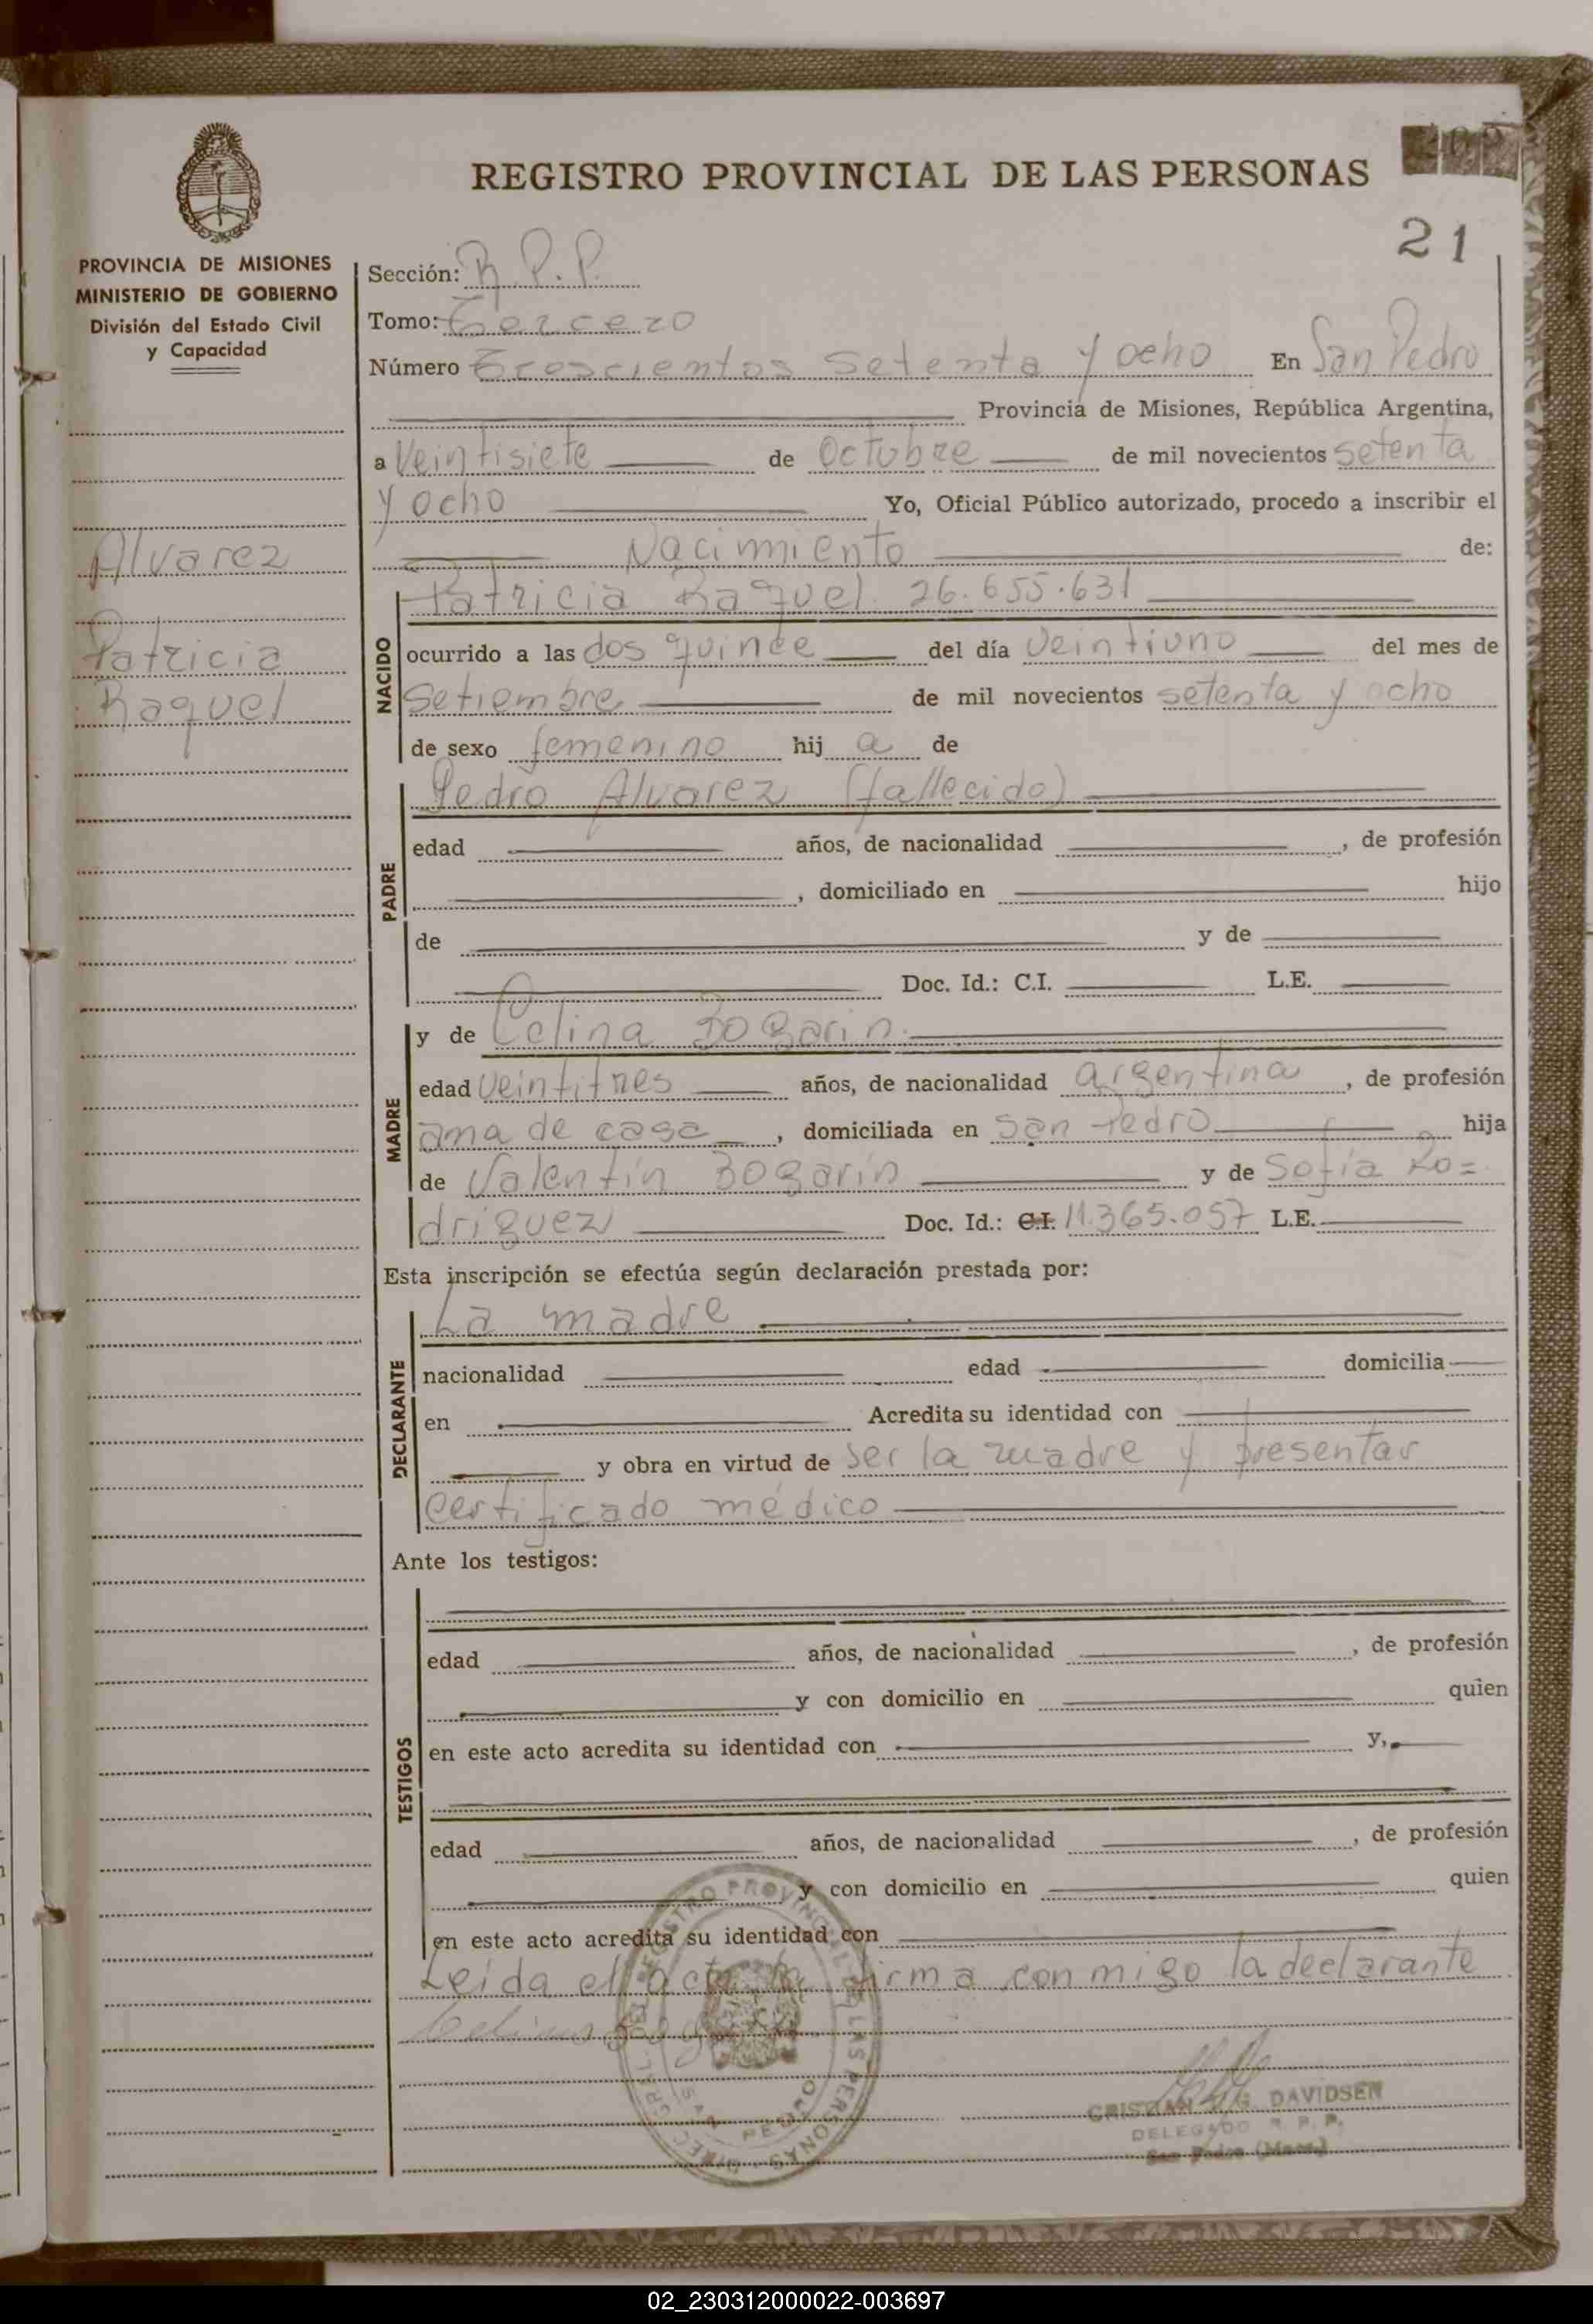 REGISTRO PROVINCIAL DE LAS PERSONAS
21
PROVINCIA DE MISIONES
MINISTERIO DE GOBIERNO
División del Estado Civil
y Capacidad
Alvarez
Patricia
Raquel
Sección: R.P.P.
Tomo: Tercero
Número Trescientos setenta y ocho En San Pedro
Provincia de Misiones, República Argentina,
a Veintisiete de Octubre de mil novecientos setenta
y ocho Yo, Oficial Público autorizado, procedo a inscribir el
Nacimiento de:
NACIDO
Patricia Raquel 26.655.631
ocurrido a las dos quince del día Veintiuno del mes de
Setiembre de mil novecientos setenta y ocho
de sexo femenino hij a de
PADRE
Pedro Alvarez (fallecido)
edad años, de nacionalidad , de profesión
, domiciliado en hijo
de y de
Doc. Id.: C.I. L.E.
MADRE
y de Celina Bogarin
edad veintitres años, de nacionalidad argentina, de profesión
ama de casa, domiciliada en San Pedro hija
de Valentín Bogarín y de Sofía Ro=
driguez Doc. Id.: C.I. 11.365.057 L.E.
Esta inscripción se efectúa según declaración prestada por:
DECLARANTE
La madre
nacionalidad edad domicilia
en Acredita su identidad con
y obra en virtud de ser la madre y presentar
certificado médico
Ante los testigos:
TESTIGOS
edad años, de nacionalidad , de profesión
y con domicilio en quien
en este acto acredita su identidad con y,
edad años, de nacionalidad , de profesión
y con domicilio en quien
en este acto acredita su identidad con
Leida el acta la firma conmigo la declarante
CRISTIAN G. DAVIDSEN
DELEGADO R. P. P.
San Pedro (Mnes.)
02_230312000022-003697